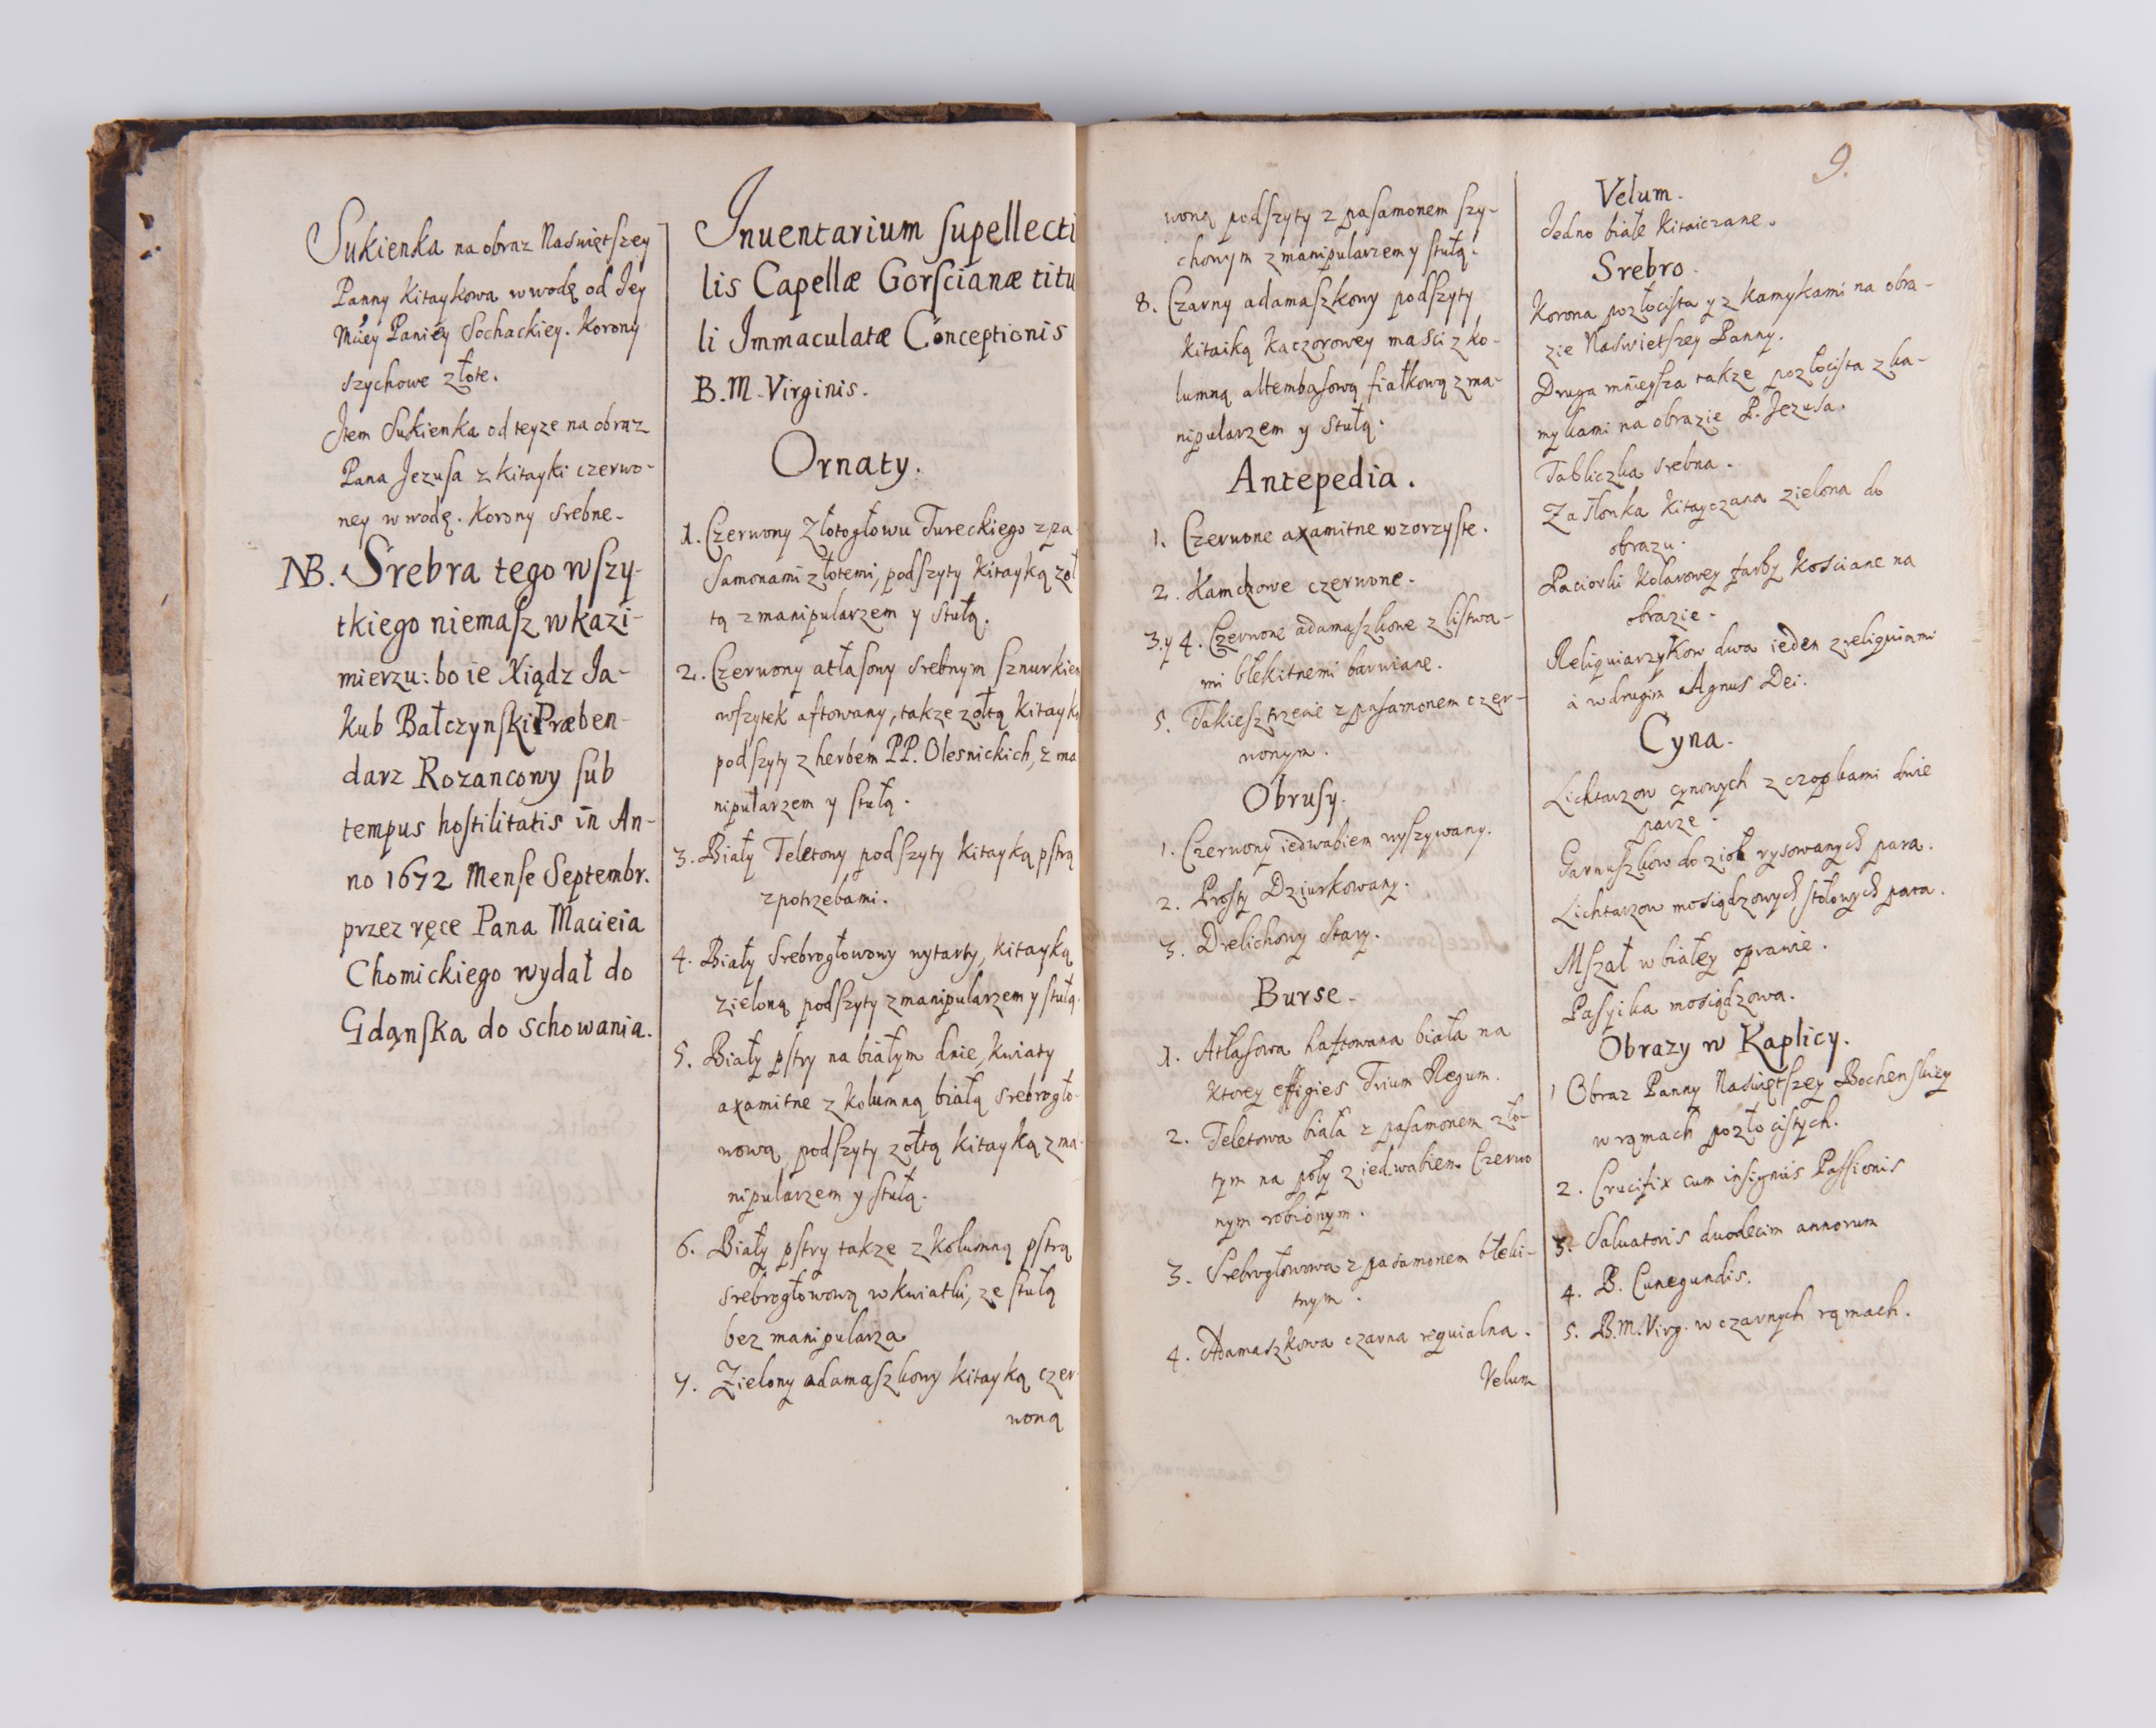 Sukienka na obraz Naświętszey
Panny Kitaykowa w wodę od Jey
Mśey Paniey Sochackiey. Korony
szychowe złote.
Item Sukienka od teyze na obraz
Pana Jezusa z kitayki czerwo-
ney w wodę. Korony srebne.
NB. Srebra tego wszy-
tkiego niemasz w kazi-
mierzu: bo ie Xiądz Ja-
kub Bałczynski Præben-
darz Rozancowy sub
tempus hostilitatis in An-
no 1672 Mense Septembr.
przez ręce Pana Macieia
Chomickiego wydał do
Gdąnska do schowania.
Inuentarium supellecti
lis Capellæ Gorscianæ titu
li Immaculatæ Conceptionis
B. M. Virginis.
Ornaty.
1. Czerwony Złotogłowu Tureckiego z pa
samonami złotemi, podszyty kitayką żoł
tą z manipularzem y stułą.
2. Czerwony atłasowy srebnym sznurkiem
wszytek aftowany, takze zołtą kitayką
podszyty z herbem PP. Olesnickich, z ma
nipularzem y stułą.
3. Biały Teletowy podszyty kitayką pstrą
z potrzebami.
4. Biały Srebrogłowowy wytarty, kitayką
zieloną podszyty z manipularzem y stułą.
5. Biały pstry na białym dnie, kwiaty
axamitne z kolumną białą srebrogło-
wową podszyty zołtą kitayką z ma-
nipularzem y stułą.
6. Biały pstry takze z kolumną pstrą
srebrogłowową w kwiatki, ze stułą
bez manipularza
7. Zielony adamaszkowy kitayką czer-
woną
9.
woną podszyty z pasamonem szy-
chowym z manipularzem y stułą.
8. Czarny adamaszkowy podszyty
kitaiką kaczorowey masci z ko-
lumną altembasową fiałkową z ma-
nipularzem y stułą.
Antepedia.
1. Czerwone axamitne wzorzyste.
2. Kamchowe czerwone.
3. y 4. Czerwone adamaszkowe z listwa-
mi błekitnemi barwiane.
5. Takiesz trzecie z pasamonem czer-
wonym.
Obrusy.
1. Czerwony iedwabiem wyszywany.
2. Prosty Dziurkowany.
3. Drelichowy stary.
Burse.
1. Atłasowa haftowana biała na
ktorey effigies Trium Regum.
2. Teletowa biała z pasamonem zło-
tym na poły z iedwabiem Czerwo
nym robionym.
3. Srebrogłowowa z pasamonem błeki-
tnym.
4. Adamaszkowa czarna requialna.
Velum
Velum.
Jedno białe kitaiczane.
Srebro.
Korona pozłocista y z kamykami na obra-
zie Naświetszey Panny.
Druga mnieysza takze pozłocista z ka-
mykami na obrazie P. Jezusa.
Tabliczka srebna.
Zasłonka kitayczana zielona do
obrazu.
Paciorki kolarowey farby kosciane na
obrazie.
Reliquiarzykow dwa ieden z reliquiami
a w drugim Agnus Dei.
Cyna.
Lichtarzow cynowych z czopkami dwie
parze.
Garnuszkow do zioł rysowanych para.
Lichtarzow mosiądzowych stołowych para.
Mszał w białey oprawie.
Pasyika mosiądzowa.
Obrazy w Kaplicy.
1 Obraz Panny Naświętszey Bochenskiey
w rąmach pozłocistych.
2. Crucifix cum insigniis Passionis
3. Saluatoris duodecim annorum
4. B. Cunegundis.
5. B. M. Virg. w czarnych rąmach.